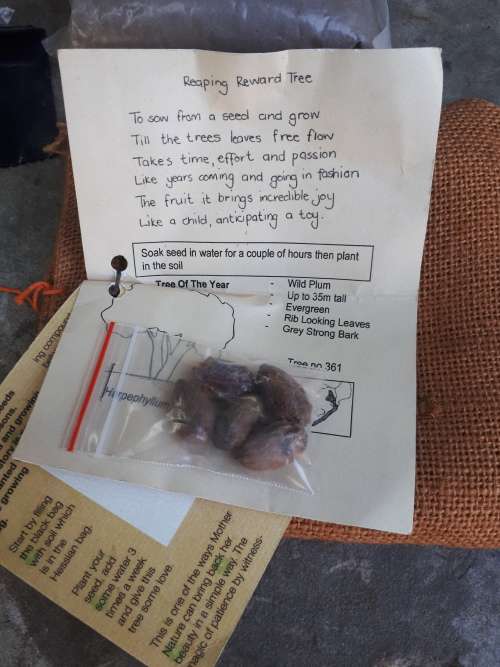 Reaping Reward Tree
To sow from a seed and grow
Till the trees leaves free flow
Takes time, effort and passion
Like years coming and going in fashion
The fruit it brings incredible joy
Like a child, anticipating a toy.
Soak seed in water for a couple of hours then plant
in the soil
Tree Of The Year
- Wild Plum
- Up to 35m tall
- Evergreen
- Rib Looking Leaves
- Grey Strong Bark
Tree no 361
Harpephyllum
ing compound
growing
Start by filling
the black bag
with soil which
is in the
Hessian bag.
Plant your
seed, add
some water 3
times a week
and give this
tree some love.
This is one of the ways Mother
Nature can bring back her
beauty in a simple way. The
magic of patience by witness-